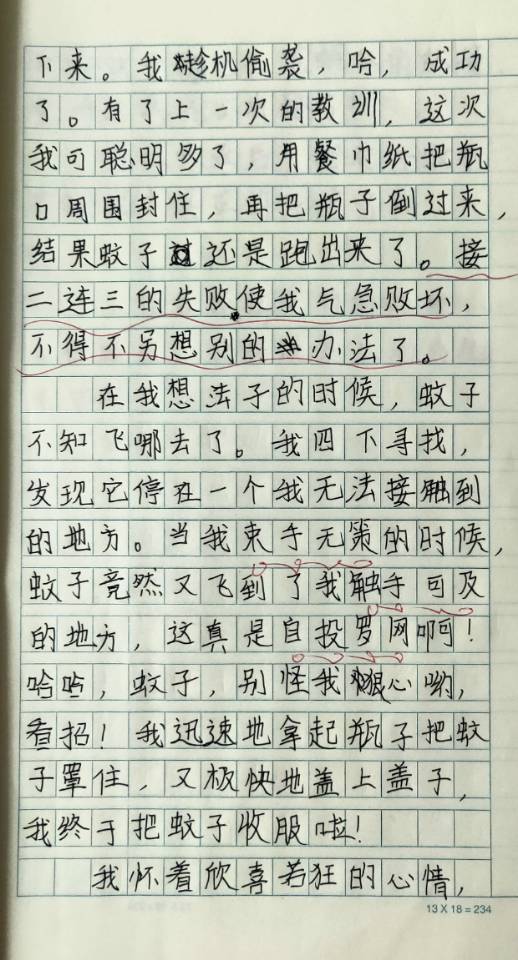 下来。我趁机偷袭，哈，成功
了。有了上一次的教训，这次
我可聪明多了，用餐巾纸把瓶
口周围封住，再把瓶子倒过来，
结果蚊子还是跑出来了。接
二连三的失败使我气急败坏，
不得不另想别的办法了。
在我想法子的时候，蚊子
不知飞哪去了。我四下寻找，
发现它停在一个我无法接触到
的地方。当我束手无策的时候，
蚊子竟然又飞到了我触手可及
的地方，这真是自投罗网啊！
哈哈，蚊子，别怪我狠心哟，
看招！我迅速地拿起瓶子把蚊
子罩住，又极快地盖上盖子，
我终于把蚊子收服啦！
我怀着欣喜若狂的心情，
13 X 18 = 234